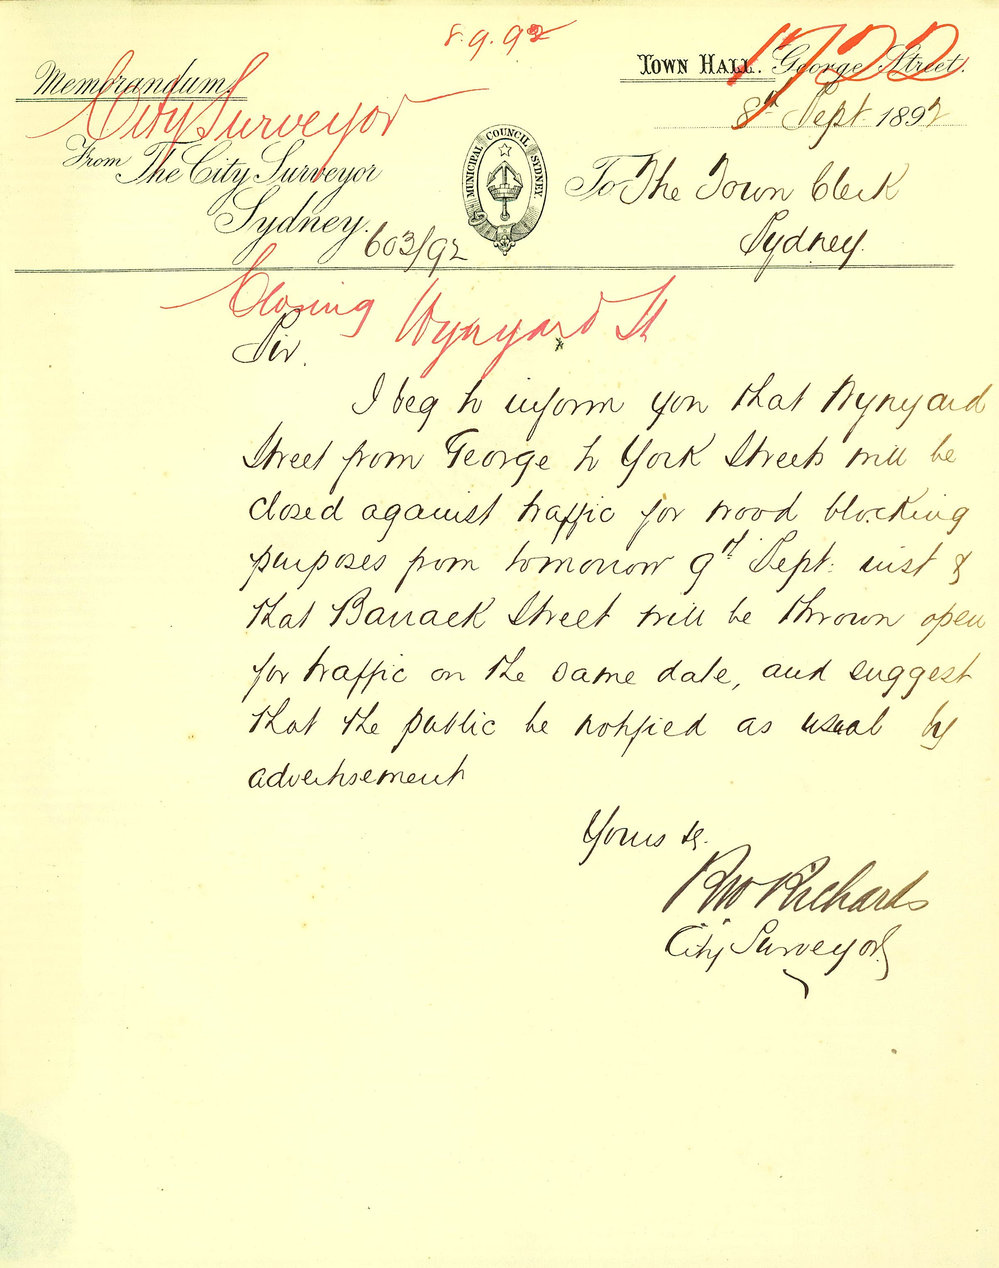 8.9.92
1722
Memorandum.
TOWN HALL. George Street.
City Surveyor
8th Sept 1892
From The City Surveyor
Sydney.
603/92
MUNICIPAL COUNCIL SYDNEY.
To The Town Clerk
Sydney.
Closing Wynyard St
Sir.
I beg to inform you that Wynyard
Street from George to York Streets will be
closed against traffic for wood blocking
purposes from tomorrow 9th Sept: inst &
that Barrack Street will be thrown open
for traffic on the same date, and suggest
that the public be notified as usual by
advertisement
Yours &c.
RW Richards
City Surveyor